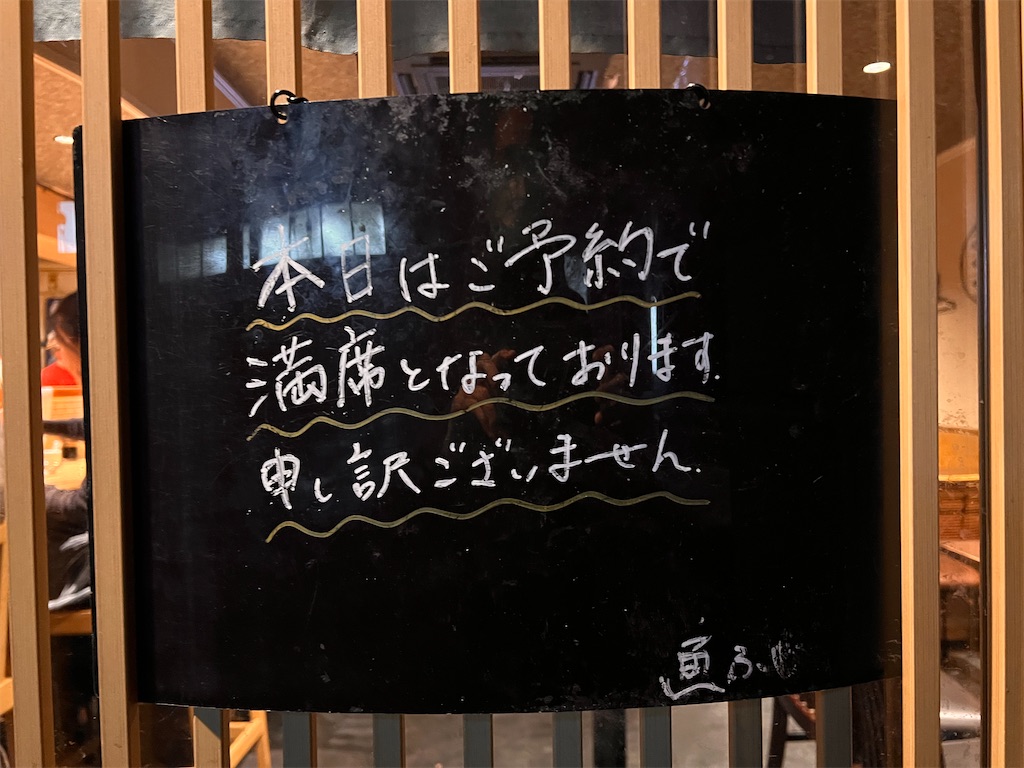 本日はご予約で
満席となっております.
申し訳ございません.